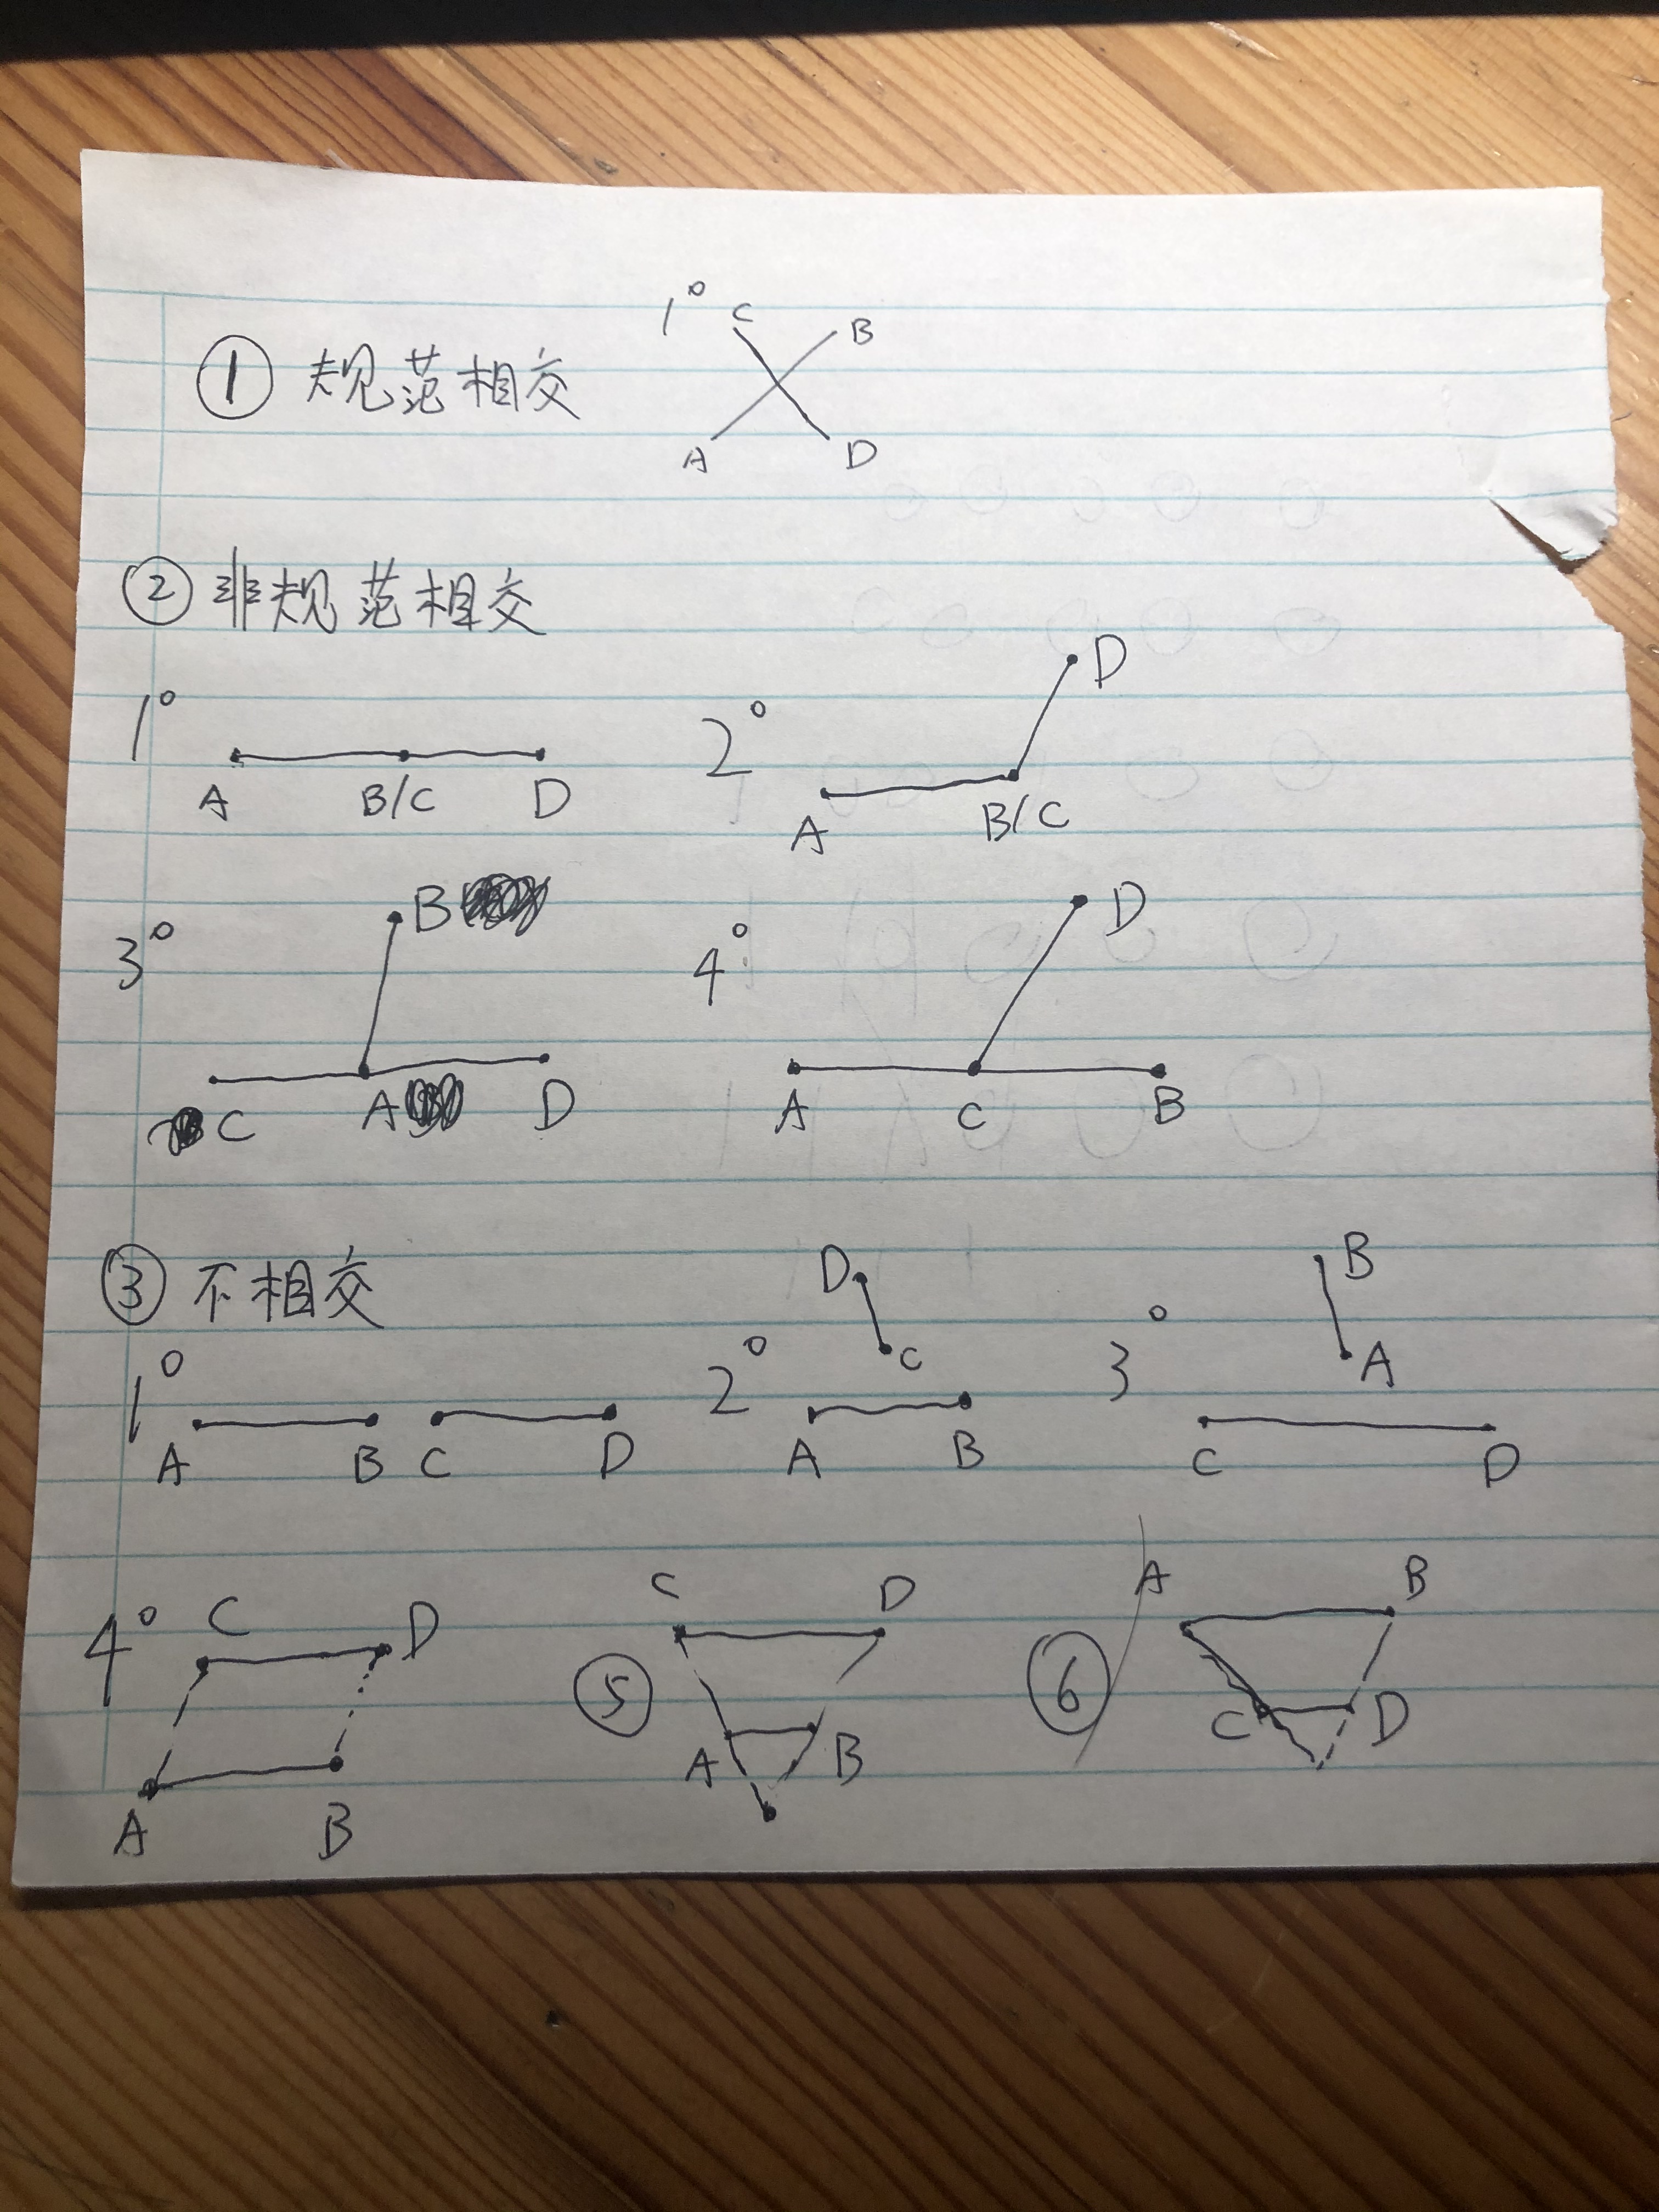 1° C B
① 规范相交
A D
② 非规范相交
1° A B/C D
2° A B/C D
3° B C A D
4° D A C B
③ 不相交
1° A B C D
2° D C A B
3° B A C D
4° C D A B
⑤ C D A B
⑥ A B C D